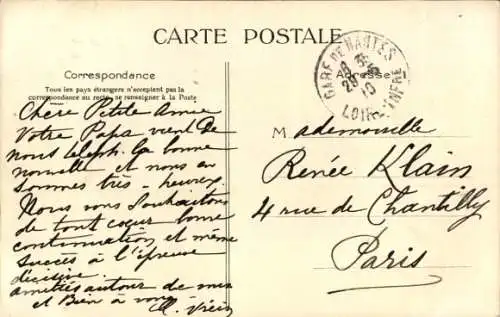 CARTE POSTALE
Correspondance
Tous les pays étrangers n'acceptent pas la
correspondance au recto, se renseigner à la Poste
Adresse
GARE DE NANTES
LOIRE INFRE
Chère Petite Amie
Votre Papa vient de
nous téléph. la bonne
nouvelle et nous en
sommes très-heureux
Nous vous souhaitons
de tout cœur bonne
continuation, et même
succès à l'épreuve
décisive.
amitiés autour de vous
et Bien à vous
Mademoiselle
Renée Klain
4 rue de Chantilly
Paris